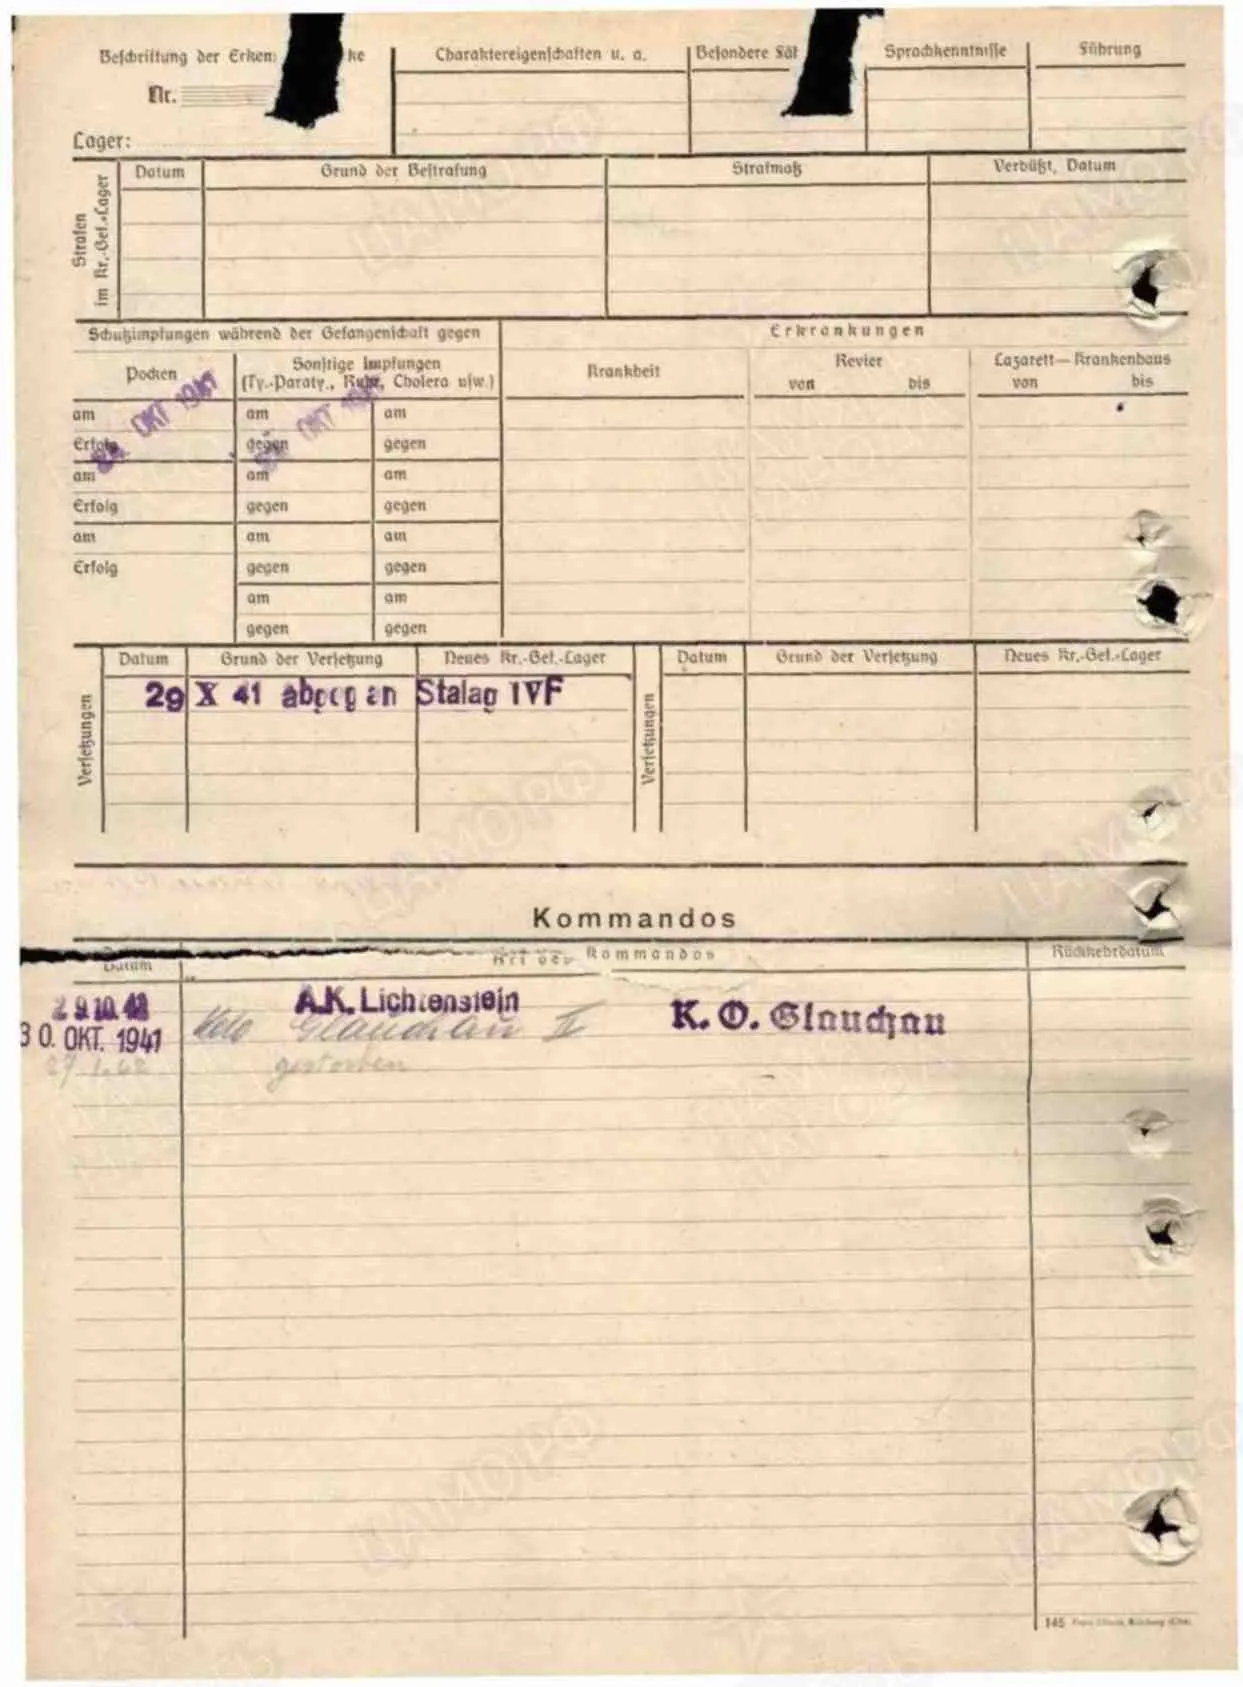 Beschriftung der Erken ke
Nr.
Lager:
Charaktereigenschaften u. a.
Besondere Fäh
Sprachkenntnisse
Führung
Strafen
im Kr.-Gef.-Lager
Datum
Grund der Bestrafung
Strafmaß
Verbüßt, Datum
Schutzimpfungen während der Gefangenschaft gegen
Erkrankungen
Pocken
Sonstige Impfungen
(Ty.-Paraty., Ruhr, Cholera usw.)
Krankheit
Revier
von bis
Lazarett—Krankenhaus
von bis
OKT 1941
OKT 1941
am am am
Erfolg gegen gegen
am am am
Erfolg gegen gegen
am am am
Erfolg gegen gegen
am am
gegen gegen
Versetzungen
Datum Grund der Versetzung Neues Kr.-Gef.-Lager
29 X 41 abgeg an Stalag IVF
Versetzungen
Datum Grund der Versetzung Neues Kr.-Gef.-Lager
Kommandos
Datum Art des Kommandos Rückkehrdatum
29.10. A.K. Lichtenstein K. O. Glauchau
30. OKT. 1941 Kdo Glauchau II
27.1.42 gestorben
145
ЦАМО РФ